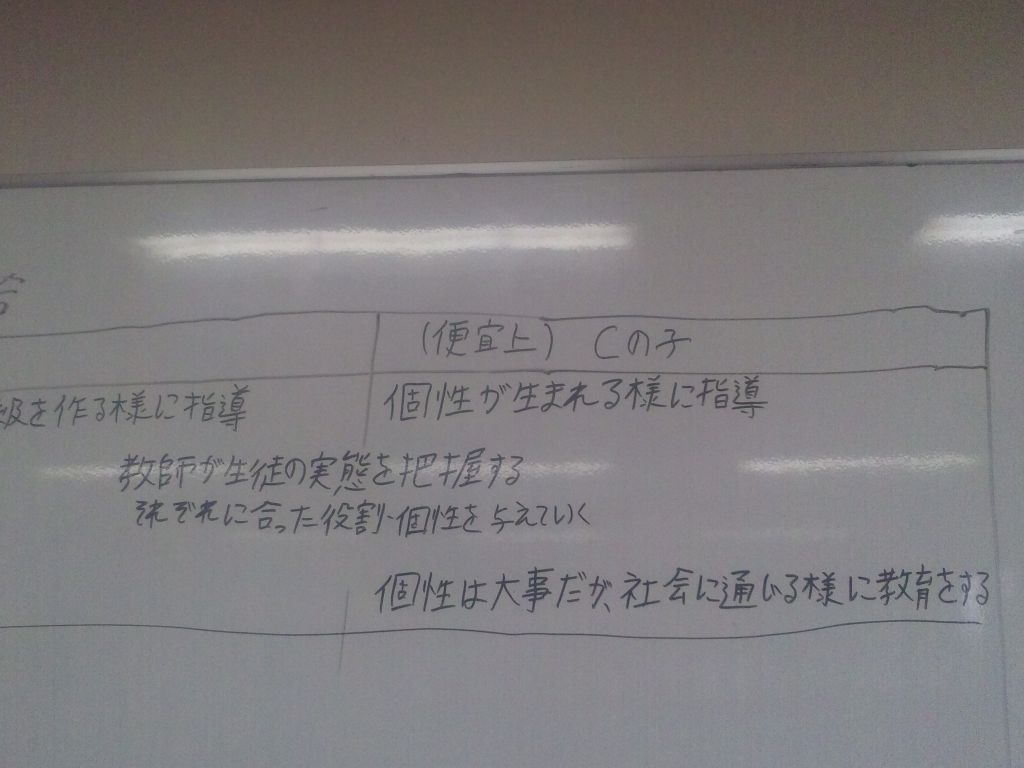 (便宜上) Cの子
級を作る様に指導
個性が生まれる様に指導
教師が生徒の実態を把握する
それぞれに合った役割・個性を与えていく
個性は大事だが、社会に通じる様に教育をする